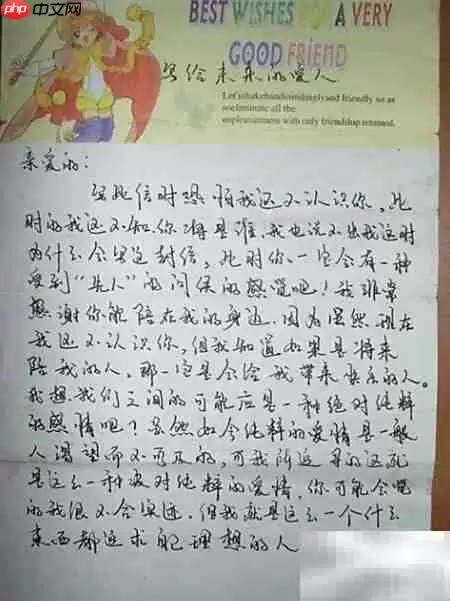 php 中文网
BEST WISHES FOR A VERY
GOOD FRIEND
写给未来的爱人
Let's shake hands smilingly and friendly so as
to eliminate all the
unpleasantness with only friendship returned.
亲爱的：
写此信时恐怕我还不认识你，此
时的我还不知你将是谁，我也说不出我这时
为什么会写这封信，此时你一定会有一种
受到“先人”的问侯的感觉吧！我非常
感谢你能陪在我的身边，因为虽然现在
我还不认识你，但我知道如果是将来
陪我的人，那一定是会给我带来快乐的人。
我想，我们之间的可能应是一种绝对纯粹
的感情吧？虽然如今纯粹的爱情是一般
人渴望而不可及的，可我所追寻的还就
是这么一种绝对纯粹的爱情，你可能会觉
的我很不合实际，但我就是这么一个什么
东西都追求配理想的人